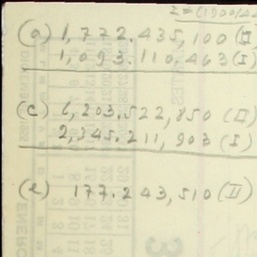 (a) 1,772.435,100 (II)
1,093.110,463 (I)
(c) 6,203.522,850 (II)
2,345.211,903 (I)
(e) 177.243,510 (II)